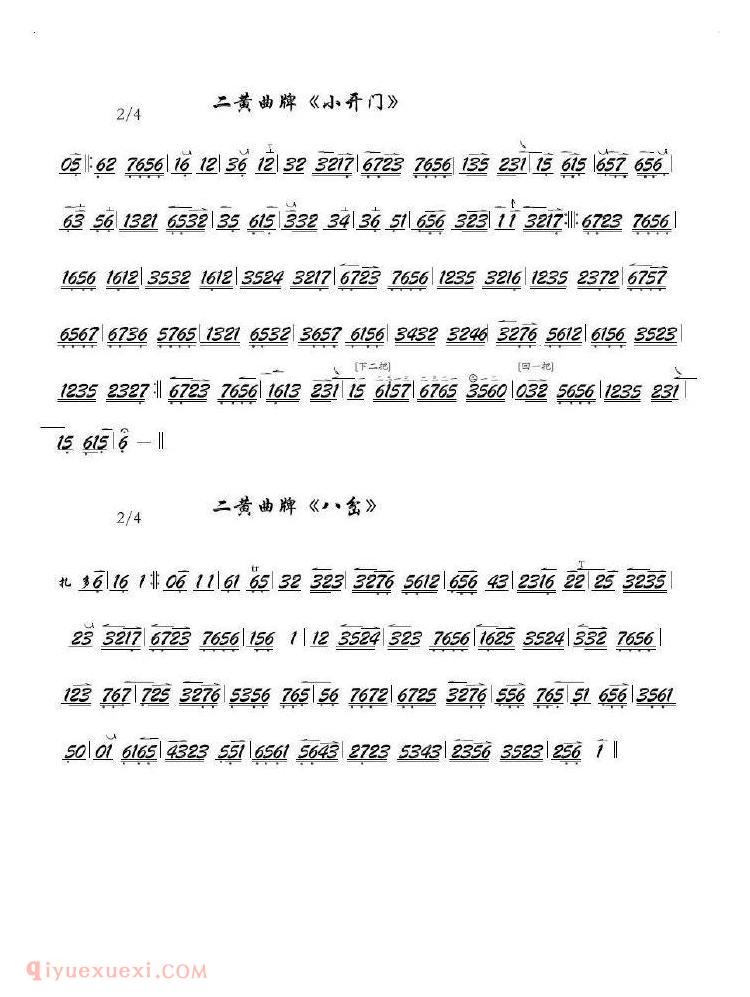 二黄曲牌《小开门》
2/4
05‖:62 7656|16 12|36 12|32 3217|6723 7656|135 231|15 615|657 656|
63 56|1321 6532|35 615|332 34|36 51|656 323|11 3217:‖:6723 7656|
1656 1612|3532 1612|3524 3217|6723 7656|1235 3216|1235 2372|6757
6567|6736 5765|1321 6532|3657 6156|3432 3246|3276 5612|6156 3523|
[下二把] [回一把]
1235 2327:‖6723 7656|1613 231|15 6157|6765 3560|032 5656|1235 231|
15 615|6 —‖
二黄曲牌《八岔》
2/4
扎 多6|16 1‖:06 11|61 65|32 323|3276 5612|656 43|2316 22|25 3235|
23 3217|6723 7656|156 1|12 3524|323 7656|1625 3524|332 7656|
123 767|725 3276|5356 765|56 7672|6725 3276|556 765|51 656|3561
50|01 6165|4323 551|6561 5643|2723 5343|2356 3523|256 1‖
qiyuexuexi.COM